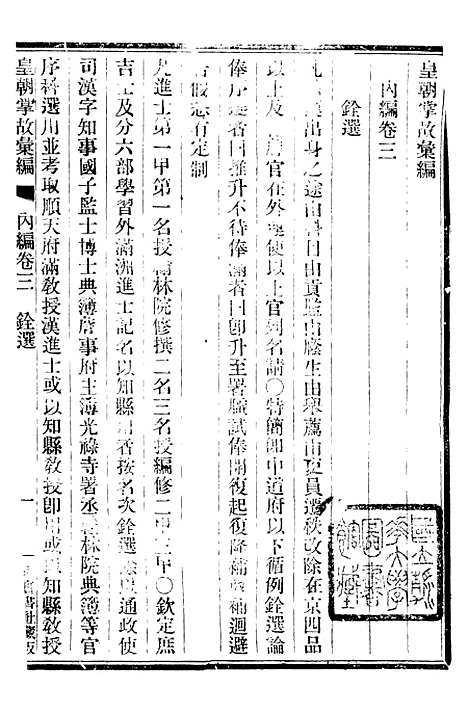 皇朝掌故彙編
內編卷三
銓選
出身之途由科目由貢監由廕生由舉薦由吏員遷秩改除在京四品
以上及官在外運使以上官列名請〇特簡卽中道府以下循例銓選論
俸序遷者曰推升不待俸滿者曰卽升至署職試俸開復起復降補補迴避
告假悉有定制
凡進士第一甲第一名授翰林院修撰二名三名授編修二甲三甲〇欽定庶
吉士及分六部學習外滿洲進士記名以知縣用者按名次銓選通政使
司漢字知事國子監博士典簿詹事府主簿光祿寺署丞翰林院典簿等官
序科選用並考取順天府滿教授漢進士或以知縣教授卽用或以知縣教授
皇朝掌故彙編 內編卷三 銓選 一 書社藏版
國立縣
大學
圖書